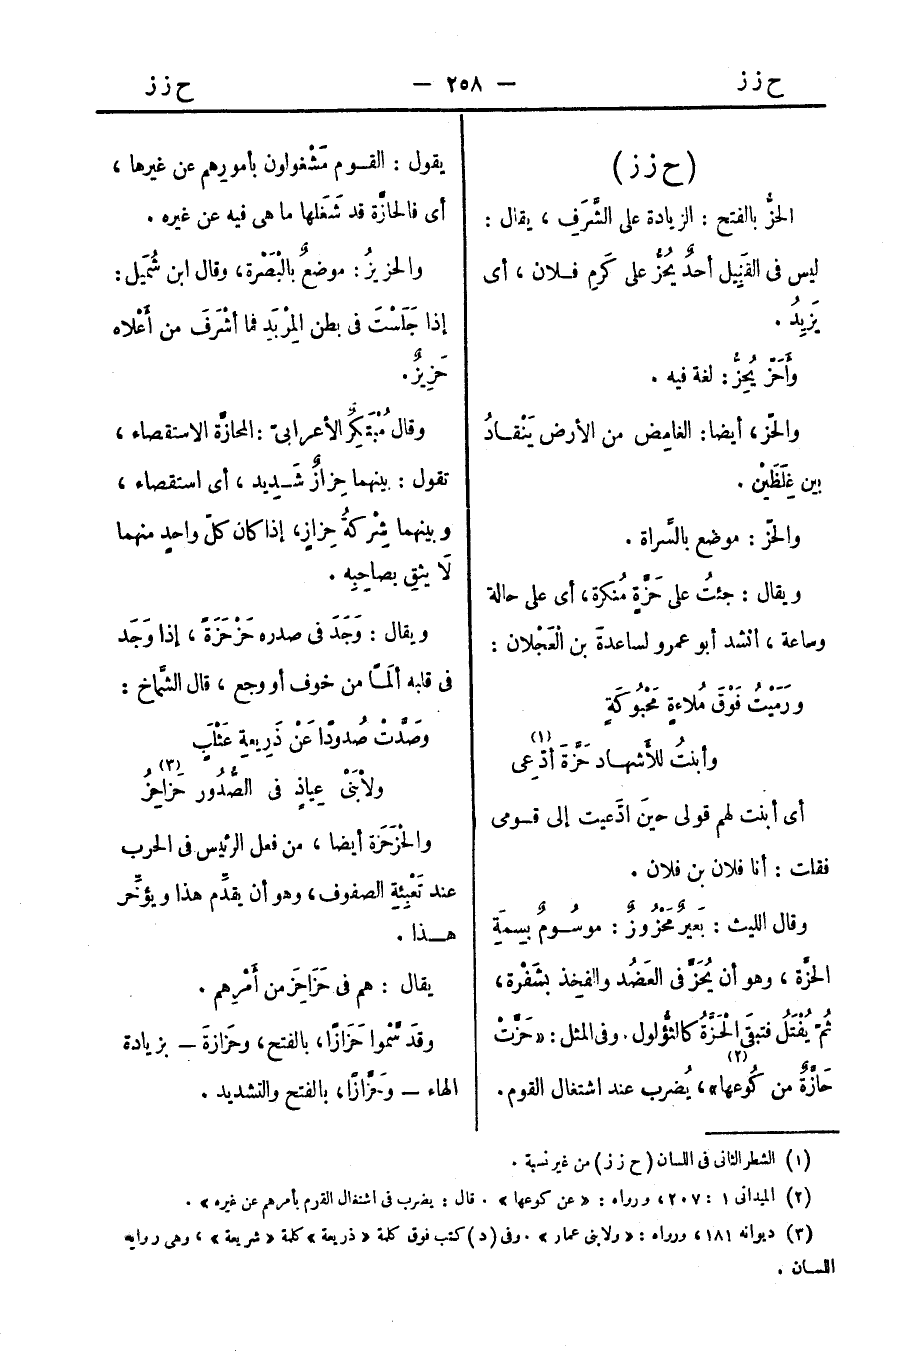 ح ز ز
— ٢٥٨ —
ح ز ز
(ح ز ز)
الحَزُّ بالفتح : الزيادة على الشَّرَف ، يقال :
ليس فى القَبِيل أحدٌ يَحُزُّ على كَرَمِ فـلان ، أى
يَزِيدُ .
وأَحَزَّ يُحِزُّ : لغة فيه .
والحَزّ ، أيضا : الغامِض من الأرض يَنْقـادُ
بين غِلَظَيْن .
والحَزّ : موضع بالسَّراة .
ويقال : جئتُ على حَزَّةٍ مُنكرة ، أى على حالة
وساعة ، أنشد أبو عمرو لساعدةَ بن العَجْلان :
ورَمَيْتُ فَوْقَ مُلاءةٍ مَحْبُوكَةٍ
وأبنتُ للأَشهاد حَزَّةَ أدَّعِى (١)
أى أبنت لهم قولى حينَ ادَّعيت إلى قـومى
فقلت : أنا فلان بن فلان .
وقال الليث : بَعِيرٌ مَحْزُوزٌ : موسُـومٌ بِسِمَةِ
الحَزَّة ، وهو أن يُحَزَّ فى العَضُد والفخذ بشَفْرة ،
ثمّ يُفْتَلُ فتبقى الحَزَّةُ كالثُّؤْلول . وفى المثل : «حَزَّتْ
حَازَّةٌ من كُوعها (٢)» ، يُضرب عند اشتغال القوم .
يقول : القـوم مَشْغولون بأمورِهم عن غيرها ،
أى فالحازَّة قد شَغَلها ما هى فيه عن غيره .
والحزيزُ : موضعٌ بالْبَصْرة ، وقال ابن شُمَيل :
إذا جَلَسْتَ فى بطن المِرْبَدِ فما أشْرَفَ من أَعْلاه
حَزِيزٌ .
وقال مُبْتَكِرٌ الأعرابىّ : المحازَّة الاستقصاء ،
تقول : بينهما حِزازٌ شَـدِيد ، أى استقصاء ،
وبينهما شِرْكَةُ حِزازٍ ، إذا كان كلّ واحدٍ منهما
لَا يثق بصاحِبِه .
ويقال : وَجَدَ فى صدره حَزْحَزَةً ، إذا وَجَد
فى قلبه ألَمـًا من خوف أو وجع ، قال الشَّماخ :
وصَدَّتْ صُدودًا عَنْ ذَرِيعةِ عَثْلَبٍ
ولاْبْنَىْ عِياذٍ فى الصُّدُور حَزاحِزُ (٣)
والحَزْحَزة أيضا ، من فعل الرئيس فى الحرب
عند تَعْبِئَةِ الصفوف ، وهو أن يقدِّم هذا ويؤخِّر
هـذا .
يقال : هم فى حَزَاحِزَ من أَمْرِهم .
وقد سَّموا حَزَازًا ، بالفتح ، وحَزازةَ — بزيادة
الهاء — وحَزَّازًا ، بالفتح والتشديد .
(١) الشطر الثانى فى اللسان (ح ز ز) من غير نسبة .
(٢) الميدانى ١ : ٢٠٧ ، ورواه : « عن كوعها » . قال : يضرب فى اشتغال القوم بأمرهم عن غيره » .
(٣) ديوانه ١٨١ ، ورواه : « ولابنى عمار » . وفى (د) كتب فوق كلمة « ذريعة » كلمة « شريعة » ، وهى رواية
اللسان .